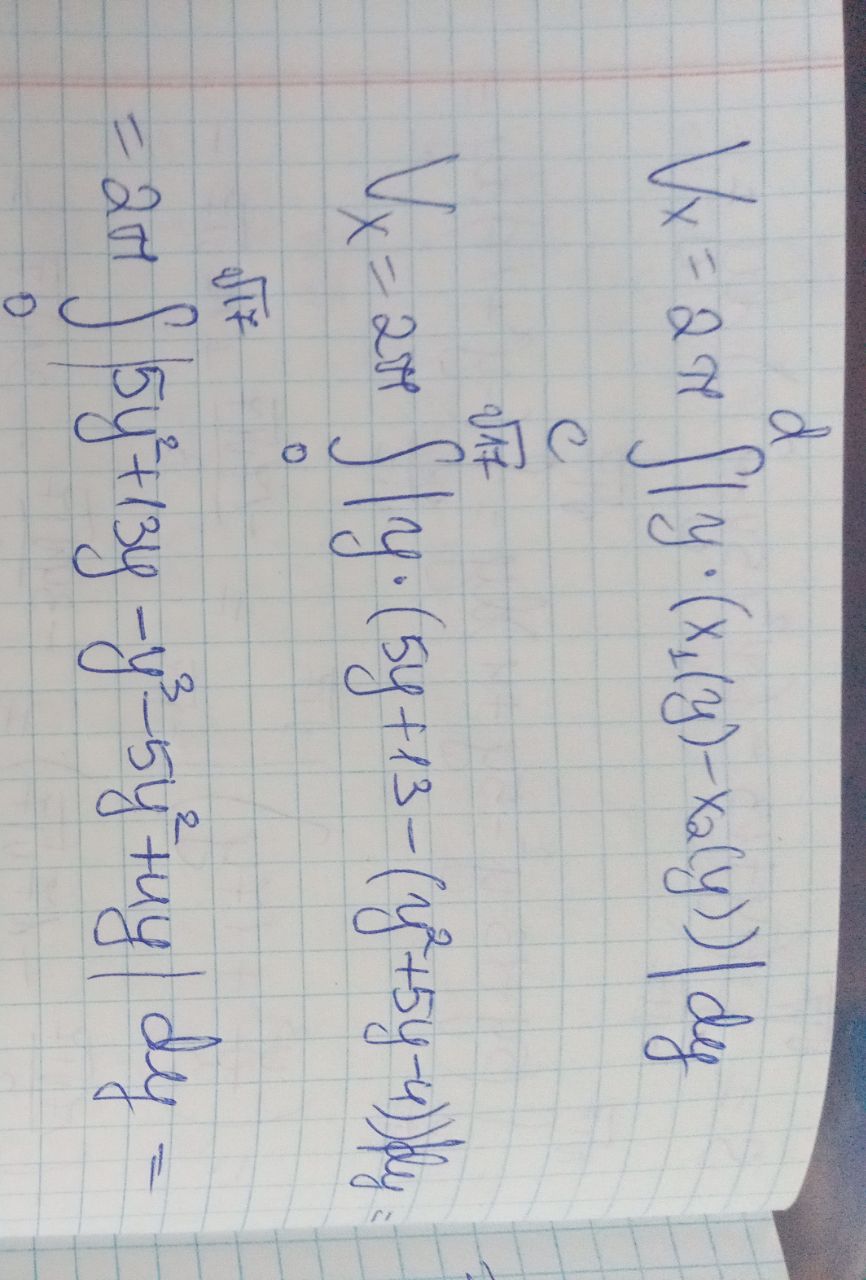 Vₓ = 2π ∫_c^d |y·(x₁(y)−x₂(y))| dy
Vₓ = 2π ∫_0^√17 |y·(5y+13−(y²+5y−4))|dy =
= 2π ∫_0^√17 |5y²+13y−y³−5y²+4y| dy =